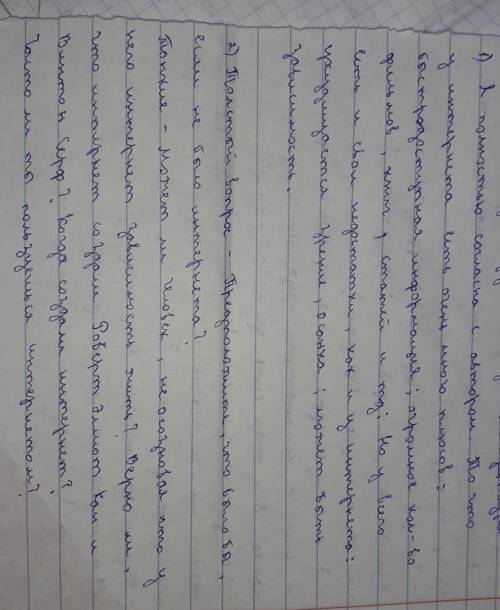 1) Я полностью согласна с автором. То что
у интернета есть очень много плюсов:
быстродоступная информация; огромное кол-во
фильмов, книг, статей и тд; Но у всего
есть и свои недостатки, как и у интернета:
ухудшается зрение, осанка; может быть
зависимость.
2) Толстый вопро - Предположите, что было бы,
если не было интернета?
Тонкие - Может ли человек, не осознавая что у
него интернет зависимость жить? Верно ли,
что интернет создали Роберт Эллиот Кан и
Винтон Серф? Когда создали интернет?
Часто ли ты пользуешься интернетом?